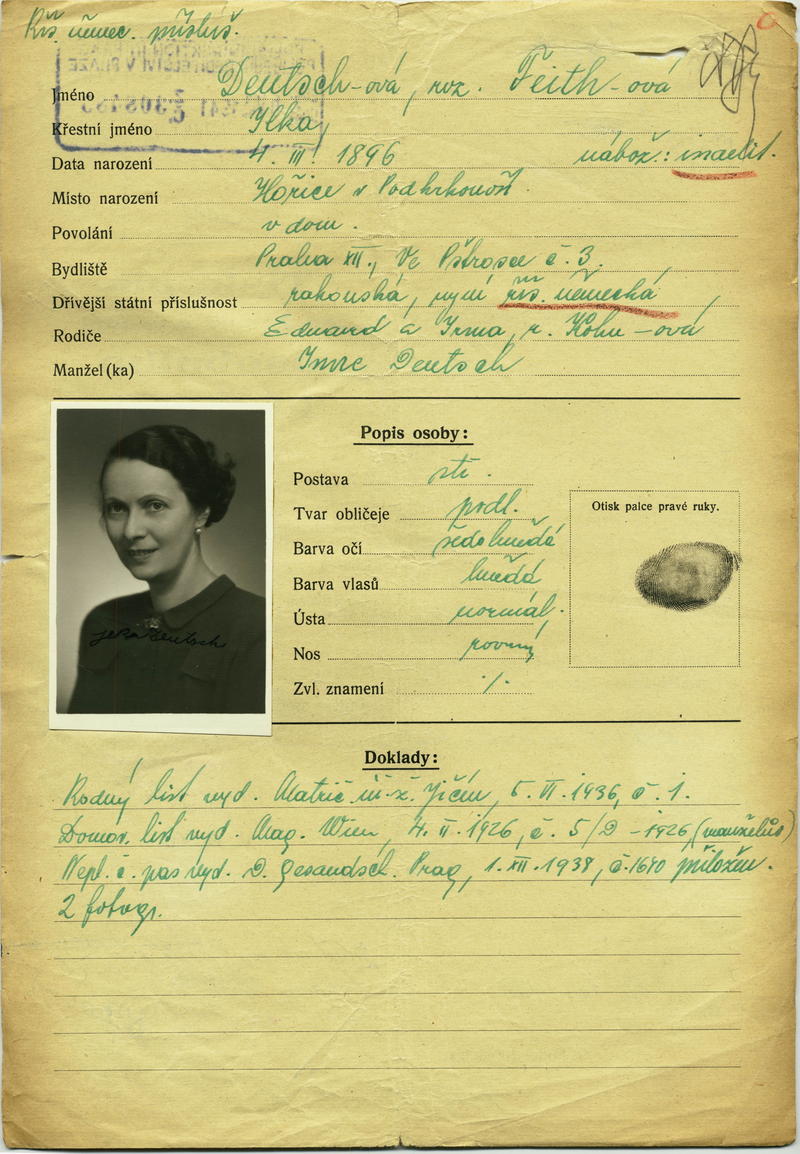 Říš. němec. přísluš.
Jméno Deutsch-ová, roz. Feith-ová
Křestní jméno Ilka,
Data narození 4. III. 1896 nábož.: israelit.
Místo narození Hořice v Podkrkonoší
Povolání v dom.
Bydliště Praha XII., Ve Pštrosce č. 3.
Dřívější státní příslušnost rakouská, nyní říš. německá,
Rodiče Eduard a Irma, r. Kohn-ová
Manžel(ka) Imre Deutsch
Popis osoby:
Postava stř.
Tvar obličeje podl.
Barva očí šedohnědé
Barva vlasů hnědá
Ústa normál.
Nos rovný
Zvl. znamení ./.
Otisk palce pravé ruky.
Ilka Deutsch
Doklady:
Rodný list vyd. Matrič. úř. ž. Jičín, 5. VI. 1936, č. 1.
Domov. list vyd. Mag. Wien, 4. II. 1926, č. 5/D - 1926, (manželův)
Nepl. č. pas vyd. D. Gesandsch. Prag, 1. XII. 1938, č. 1640 přiložen.
2 fotogr.